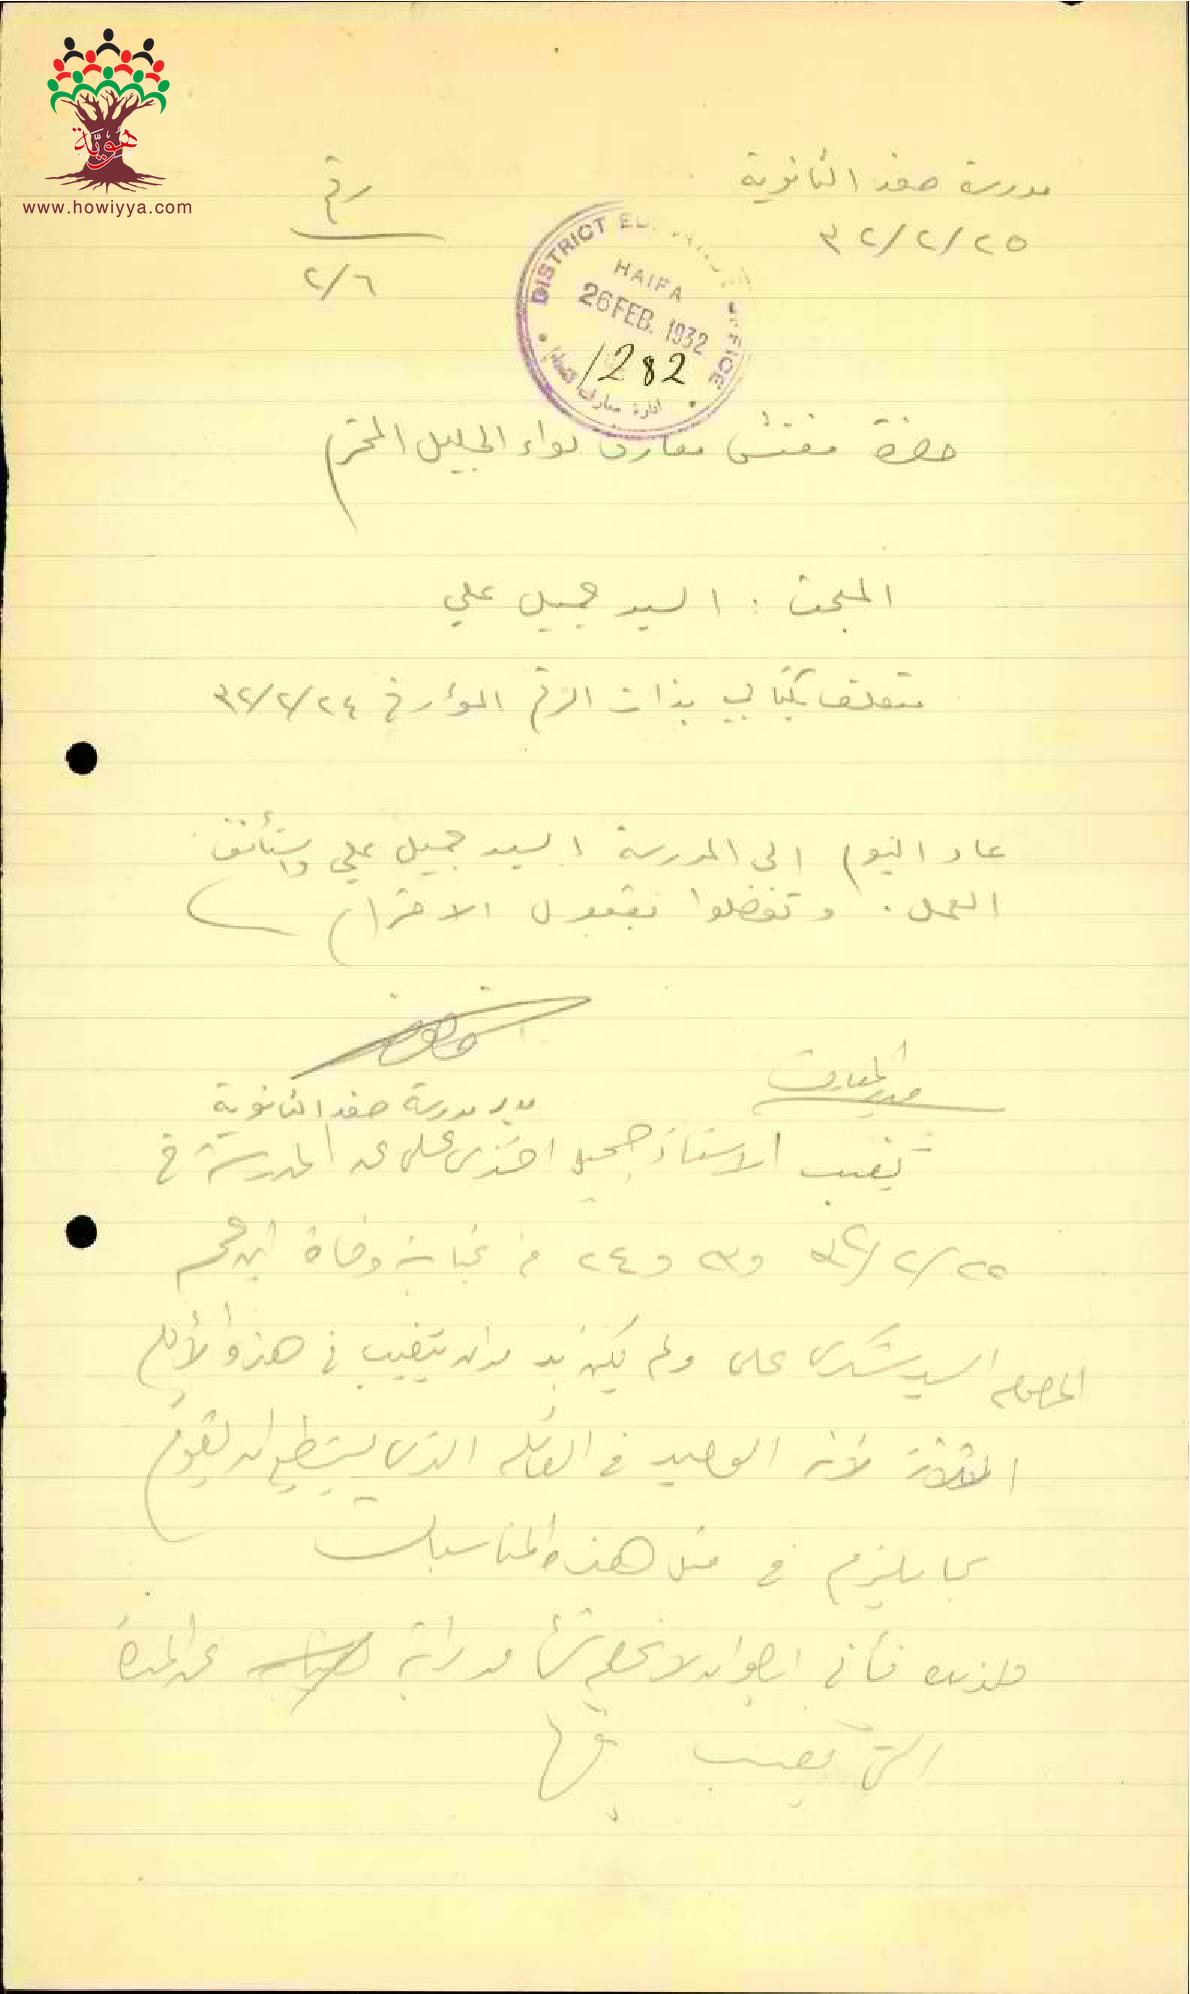 هوية
www.howiyya.com
مدرسة صفد الثانوية
٣٢/٢/٢٥
رقم
٢/٦
DISTRICT EDUCATION OFFICE
HAIFA
26 FEB. 1932
1282
ادارة معارف
حضرة مفتش معارف لواء الجليل المحترم
المبحث : السيد جميل علي
متعلق بكتابي بذات الرقم المؤرخ ٣٢/٢/٢٤
عاد اليوم الى المدرسة السيد جميل علي واستأنف
العمل . وتفضلوا بقبول الاحترام
مدير مدرسة صفد الثانوية
مدير المعارف
تغيب الاستاذ جميل افندي علي عن المدرسة في
و٢٤ من وفاة ابن عمه
المرحوم السيد شكري علي ولم يكن بد من ان يتغيب في هذه الأيام
الثلاثة لأنه الوحيد في العائلة الذي يستطيع ان يقوم
بما يلزم في مثل هذه المناسبات
ولذلك فأني ارجو ان لا تخصم شيئا من راتبه عن المدة
التي تغيب فيها